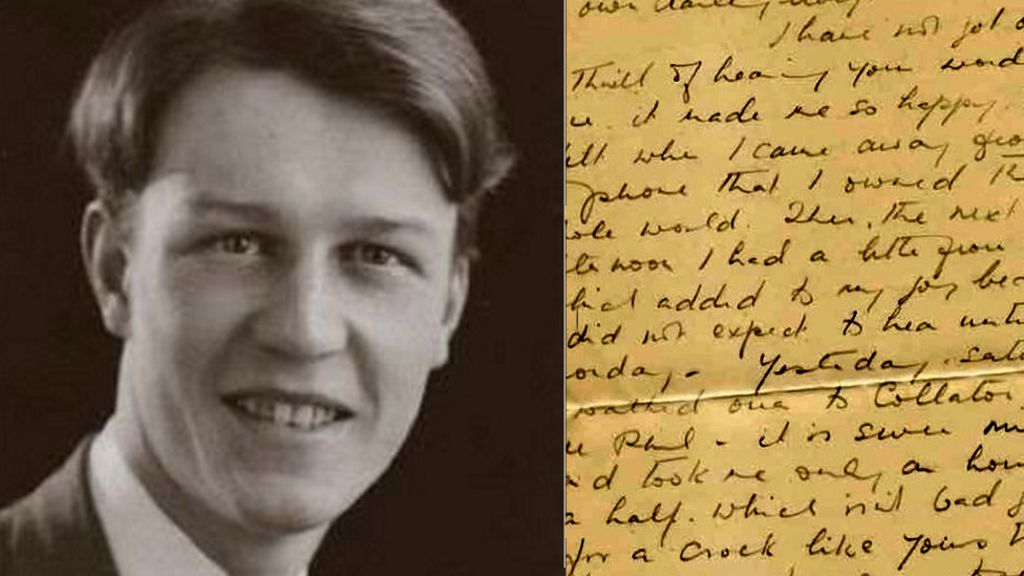 I have not got o
Thrill of hearing your word
it made me so happy.
when I came away fro
phone that I owned th
world. Then, the next
noon I had a letter from
added to my joy bec
did not expect to hear until
Yesterday, Sat
walked over to Collaton
Paul - it is seven mi
took me only an hour
a half. which isn't bad g
for a crock like yours